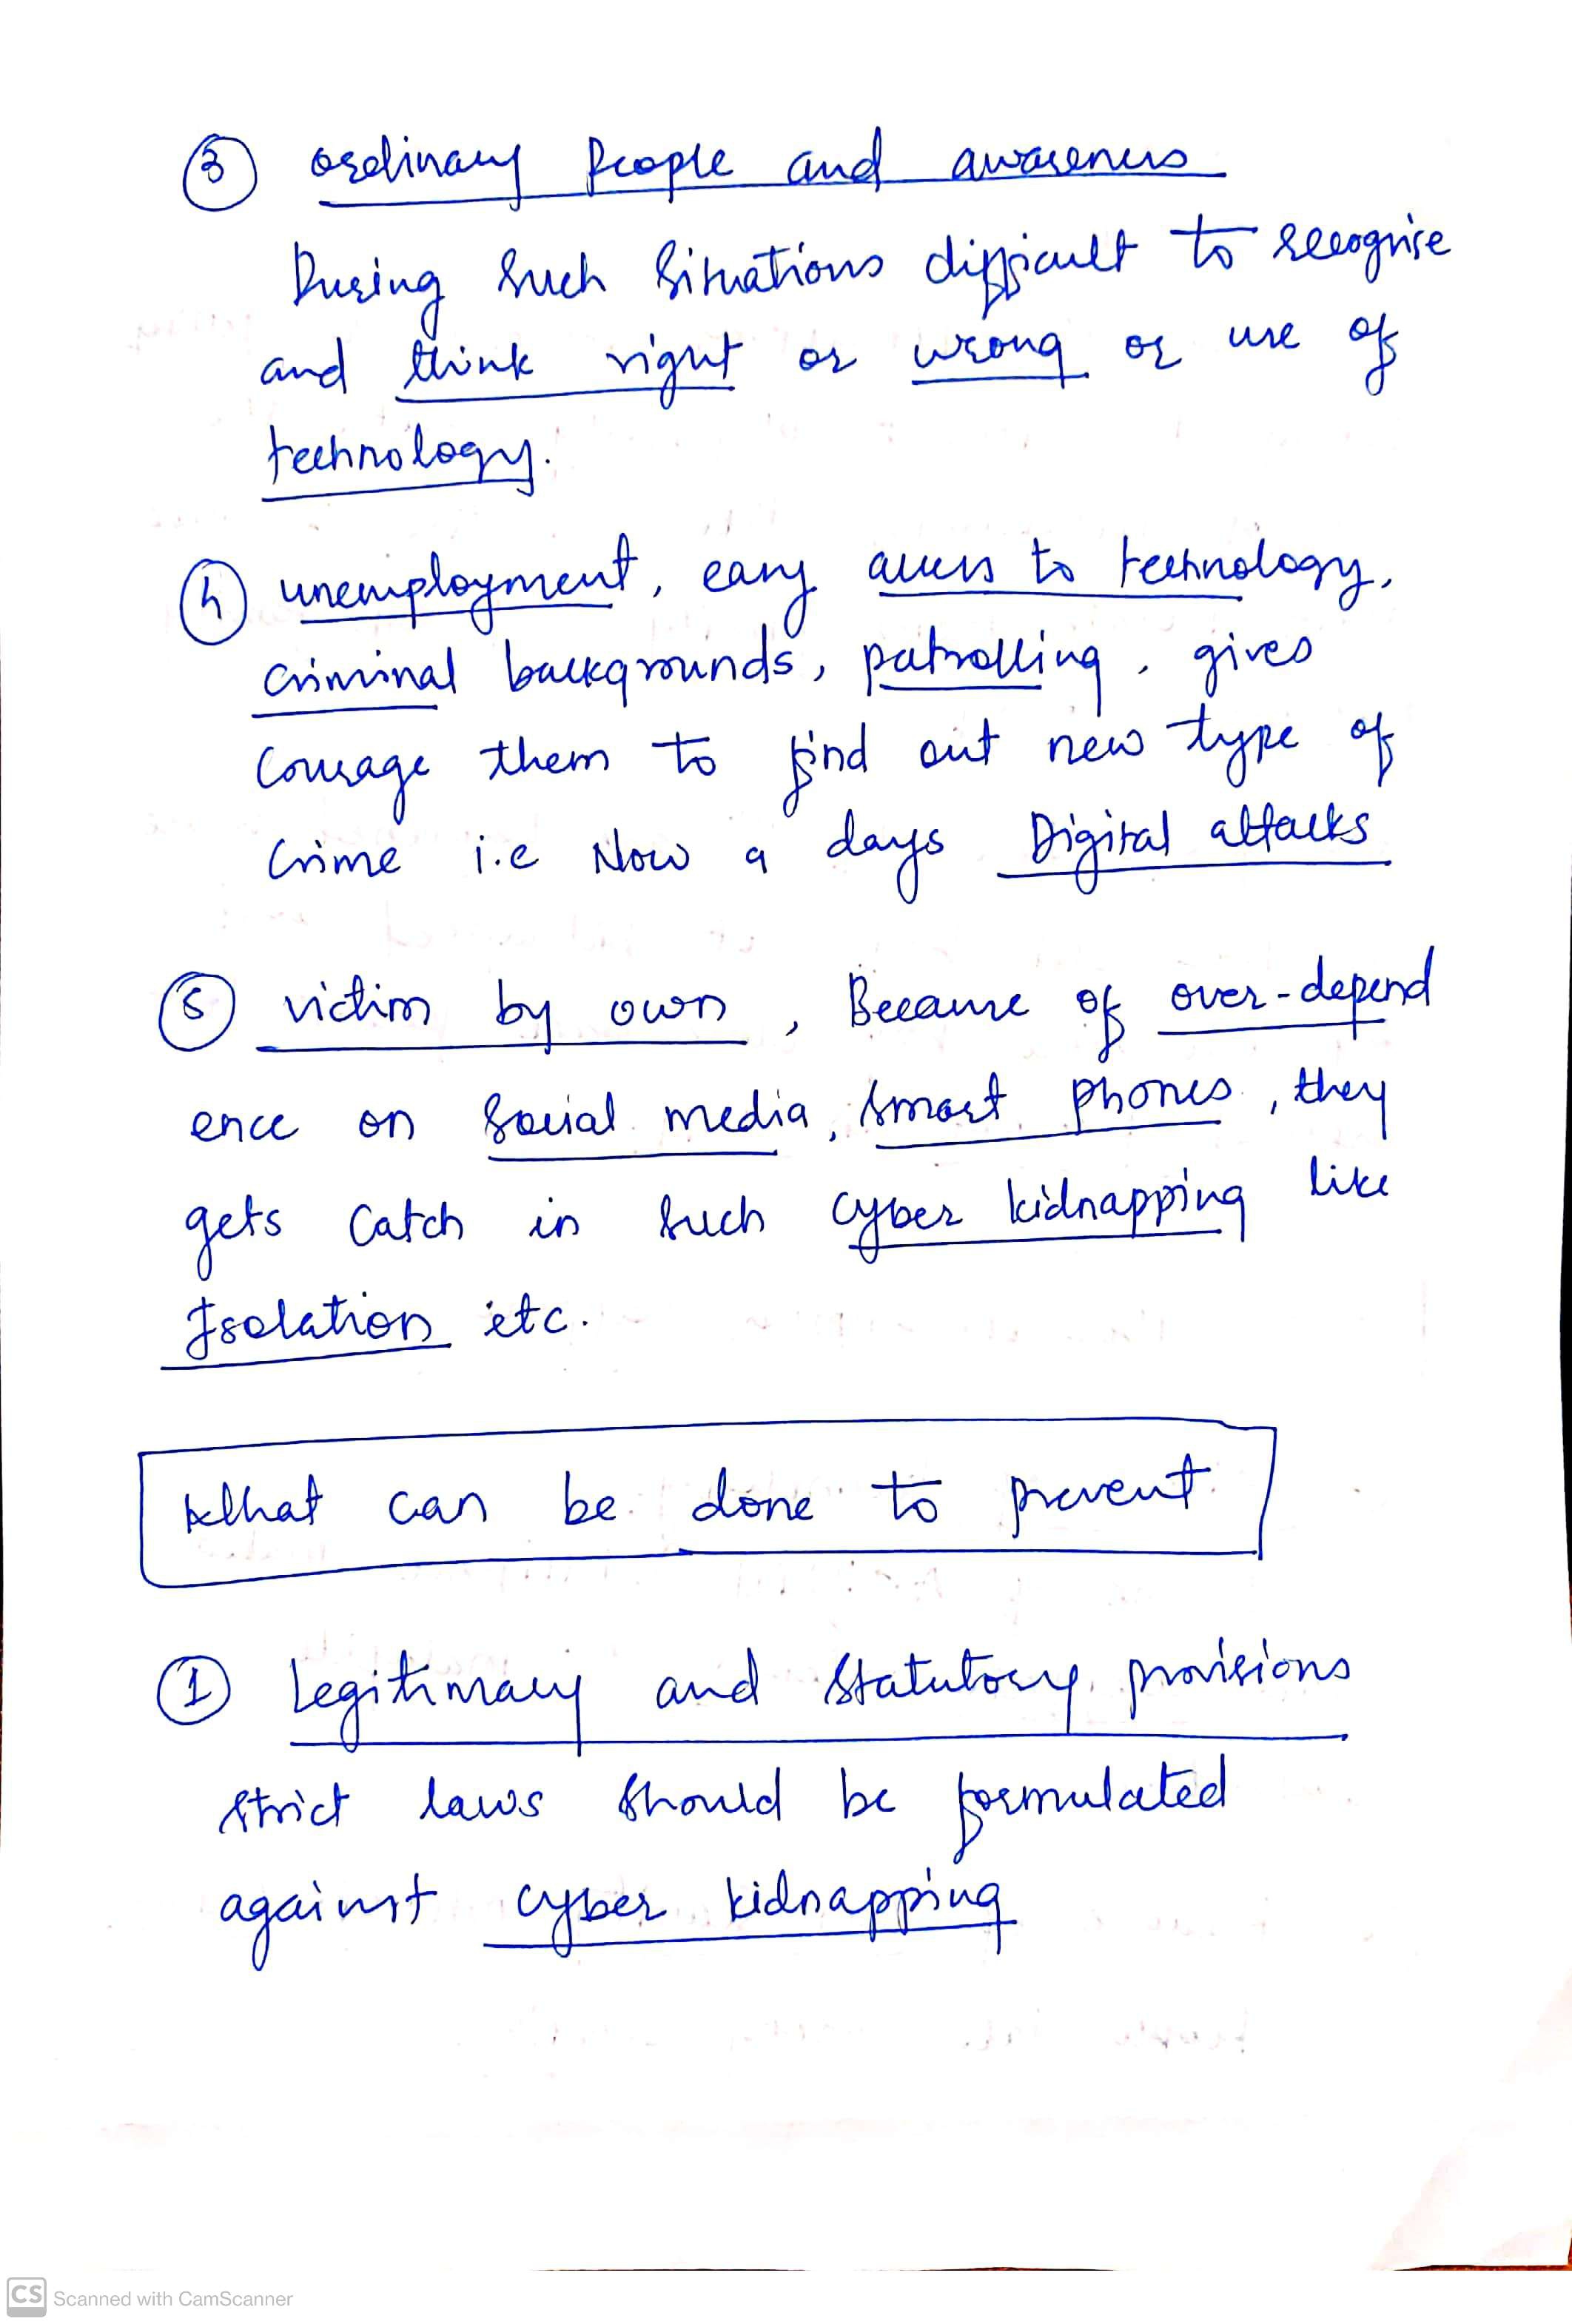 ③ ordinary People and awareness
During such situations difficult to recognise
and think right or wrong or use of
technology.
④ unemployment, easy access to technology,
criminal backgrounds, patrolling, gives
courage them to find out new type of
crime i.e Now a days Digital attacks
⑤ victim by own, Because of over-depend
ence on social media, smart phones, they
gets catch in such cyber kidnapping like
Isolation etc.
What can be done to prevent
① Legitimacy and statutory provisions
strict laws should be formulated
against cyber kidnapping
CS Scanned with CamScanner